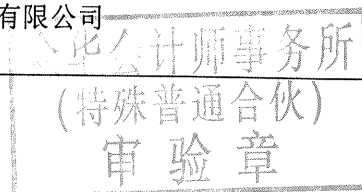 有限公司
华会计师事务所
(特殊普通合伙)
审验章